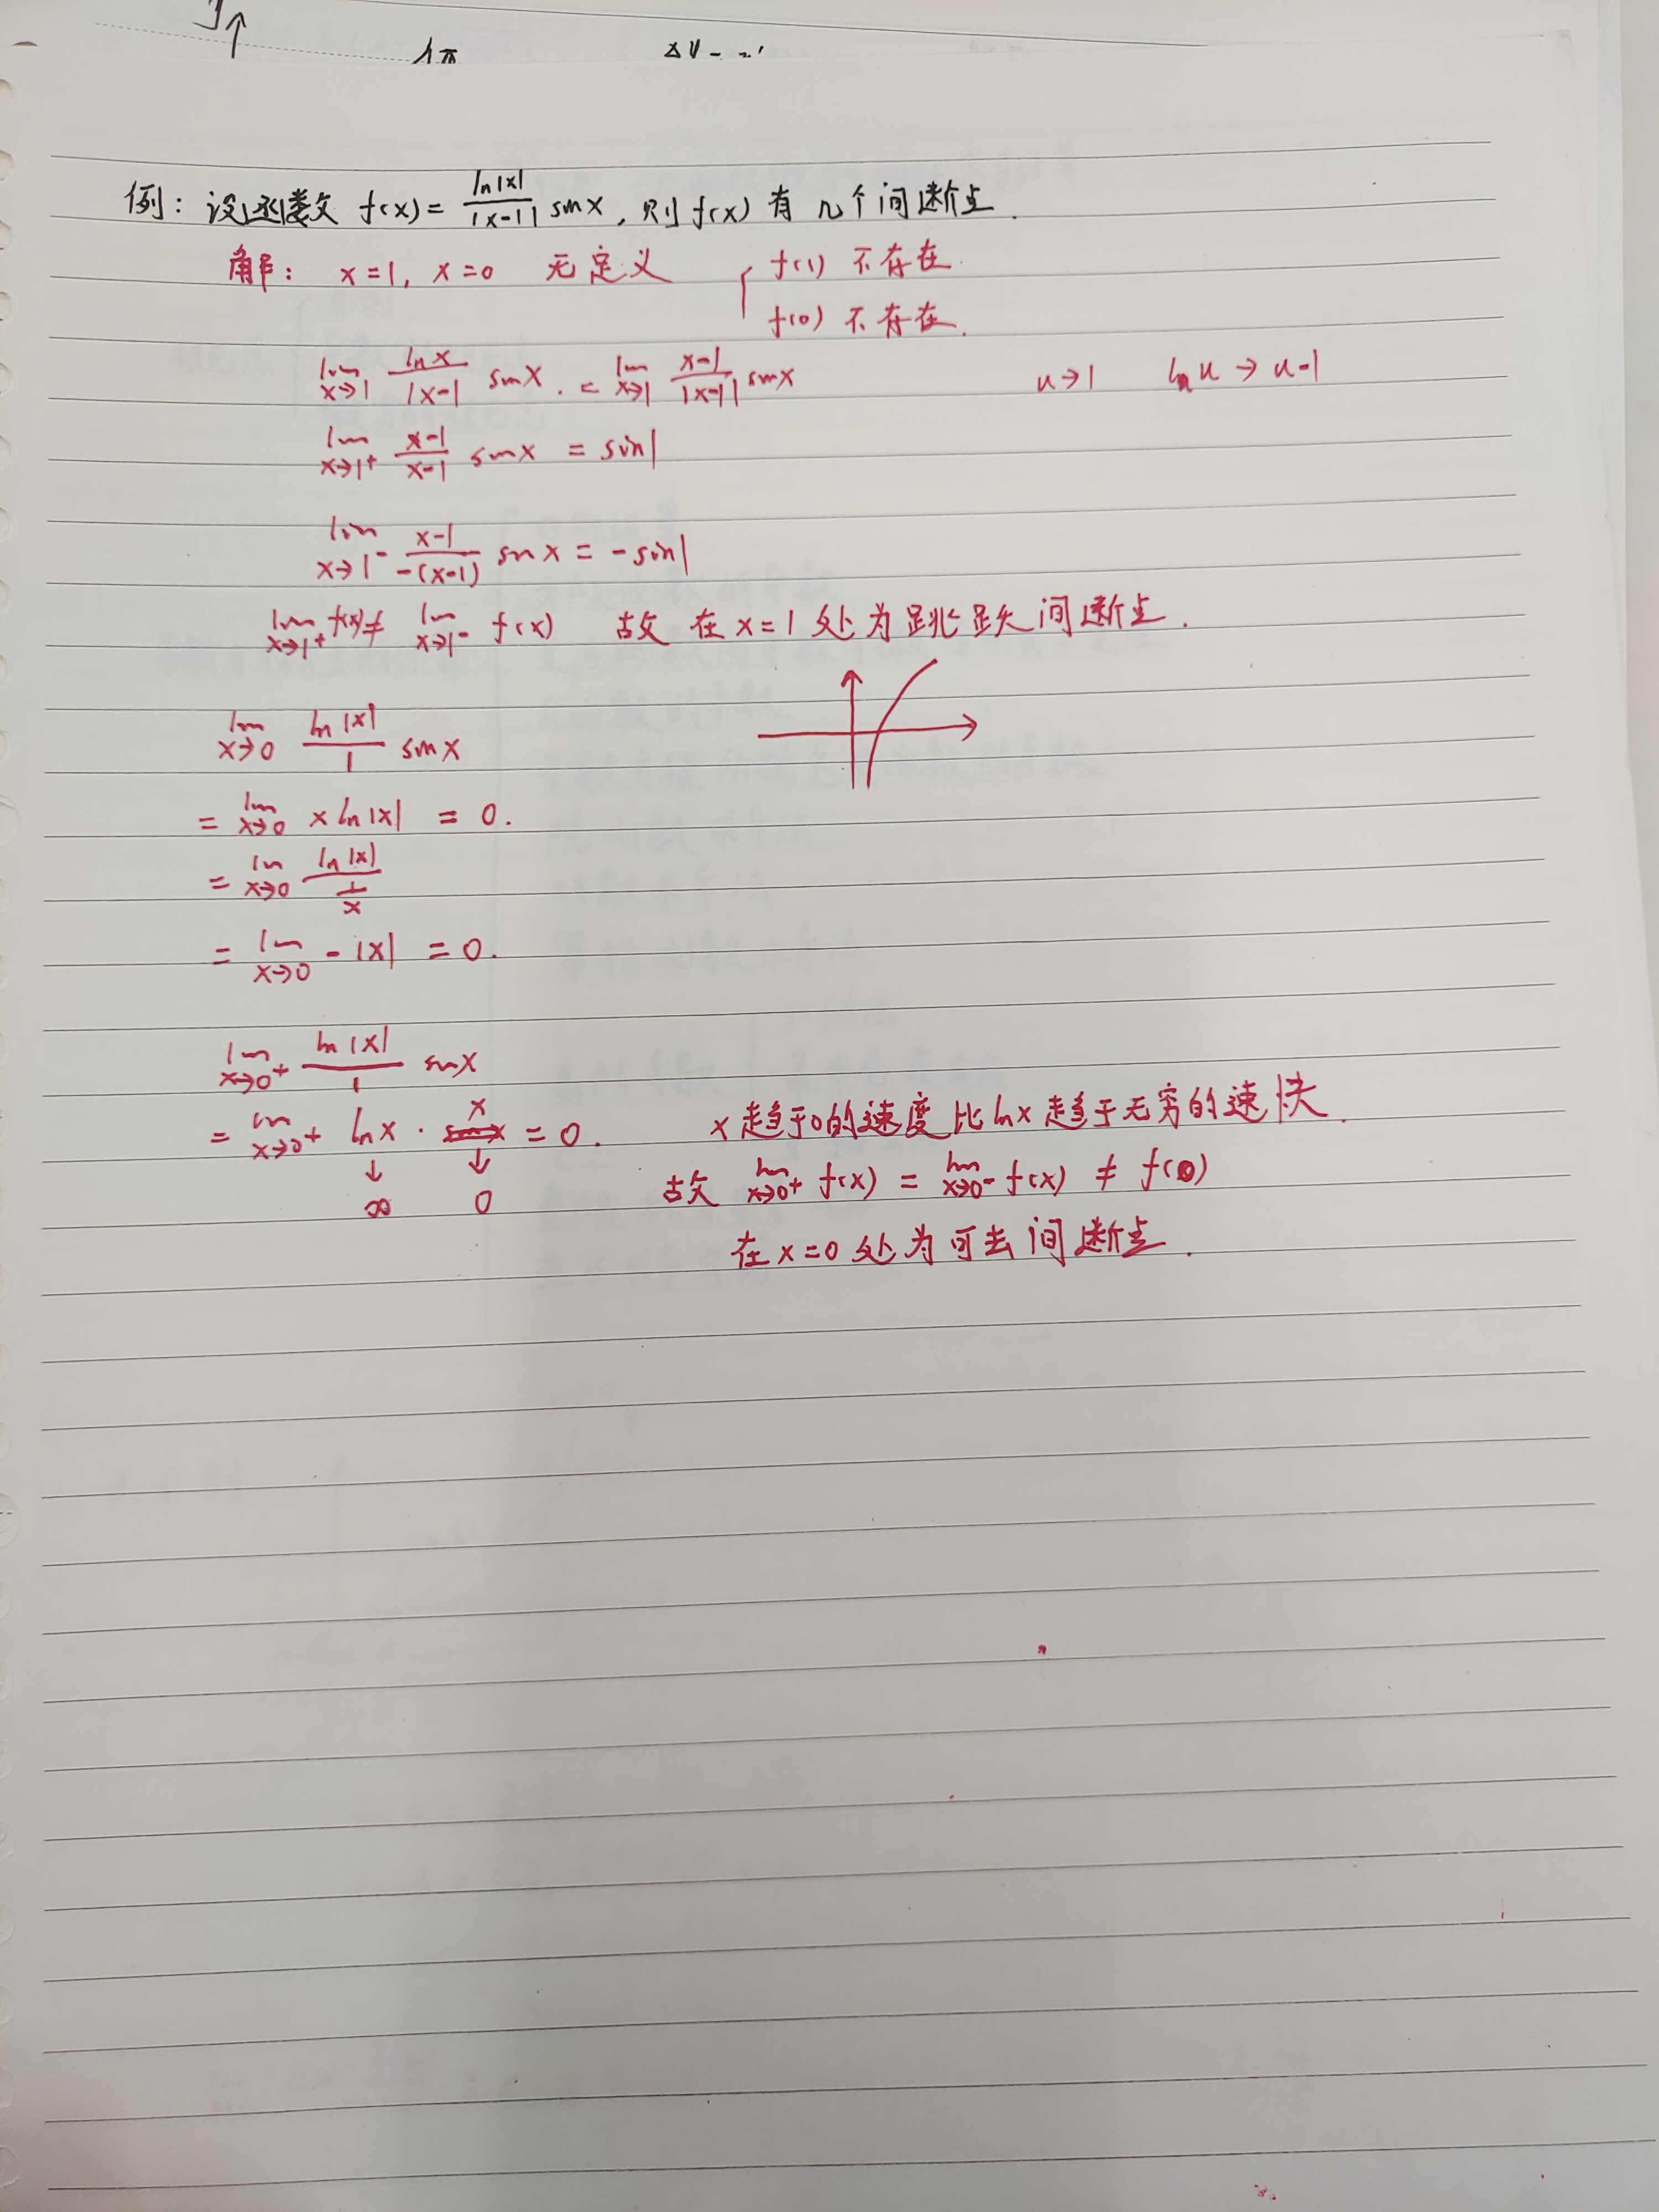 例：设函数 f(x)=ln|x|/|x-1| sinx，则f(x)有几个间断点.
解： x=1, x=0 无定义 { f(1) 不存在.
f(0) 不存在.
lim x→1 lnx/|x-1| sinx. = lim x→1 x-1/|x-1| sinx u→1 ln u → u-1
lim x→1⁺ x-1/x-1 sinx = sin1
lim x→1⁻ x-1/-(x-1) sinx = -sin1
lim x→1⁺ f(x) ≠ lim x→1⁻ f(x) 故 在 x=1 处为跳跃间断点.
lim x→0 ln|x|/1 sinx
= lim x→0 x ln|x| = 0.
= lim x→0 ln|x|/(1/x)
= lim x→0 -|x| = 0.
lim x→0⁺ ln|x|/1 sinx
= lim x→0⁺ lnx · x = 0. x趋于0的速度比lnx趋于无穷的速快.
↓ ↓
∞ 0
故 lim x→0⁺ f(x) = lim x→0⁻ f(x) ≠ f(0)
在x=0处为可去间断点.